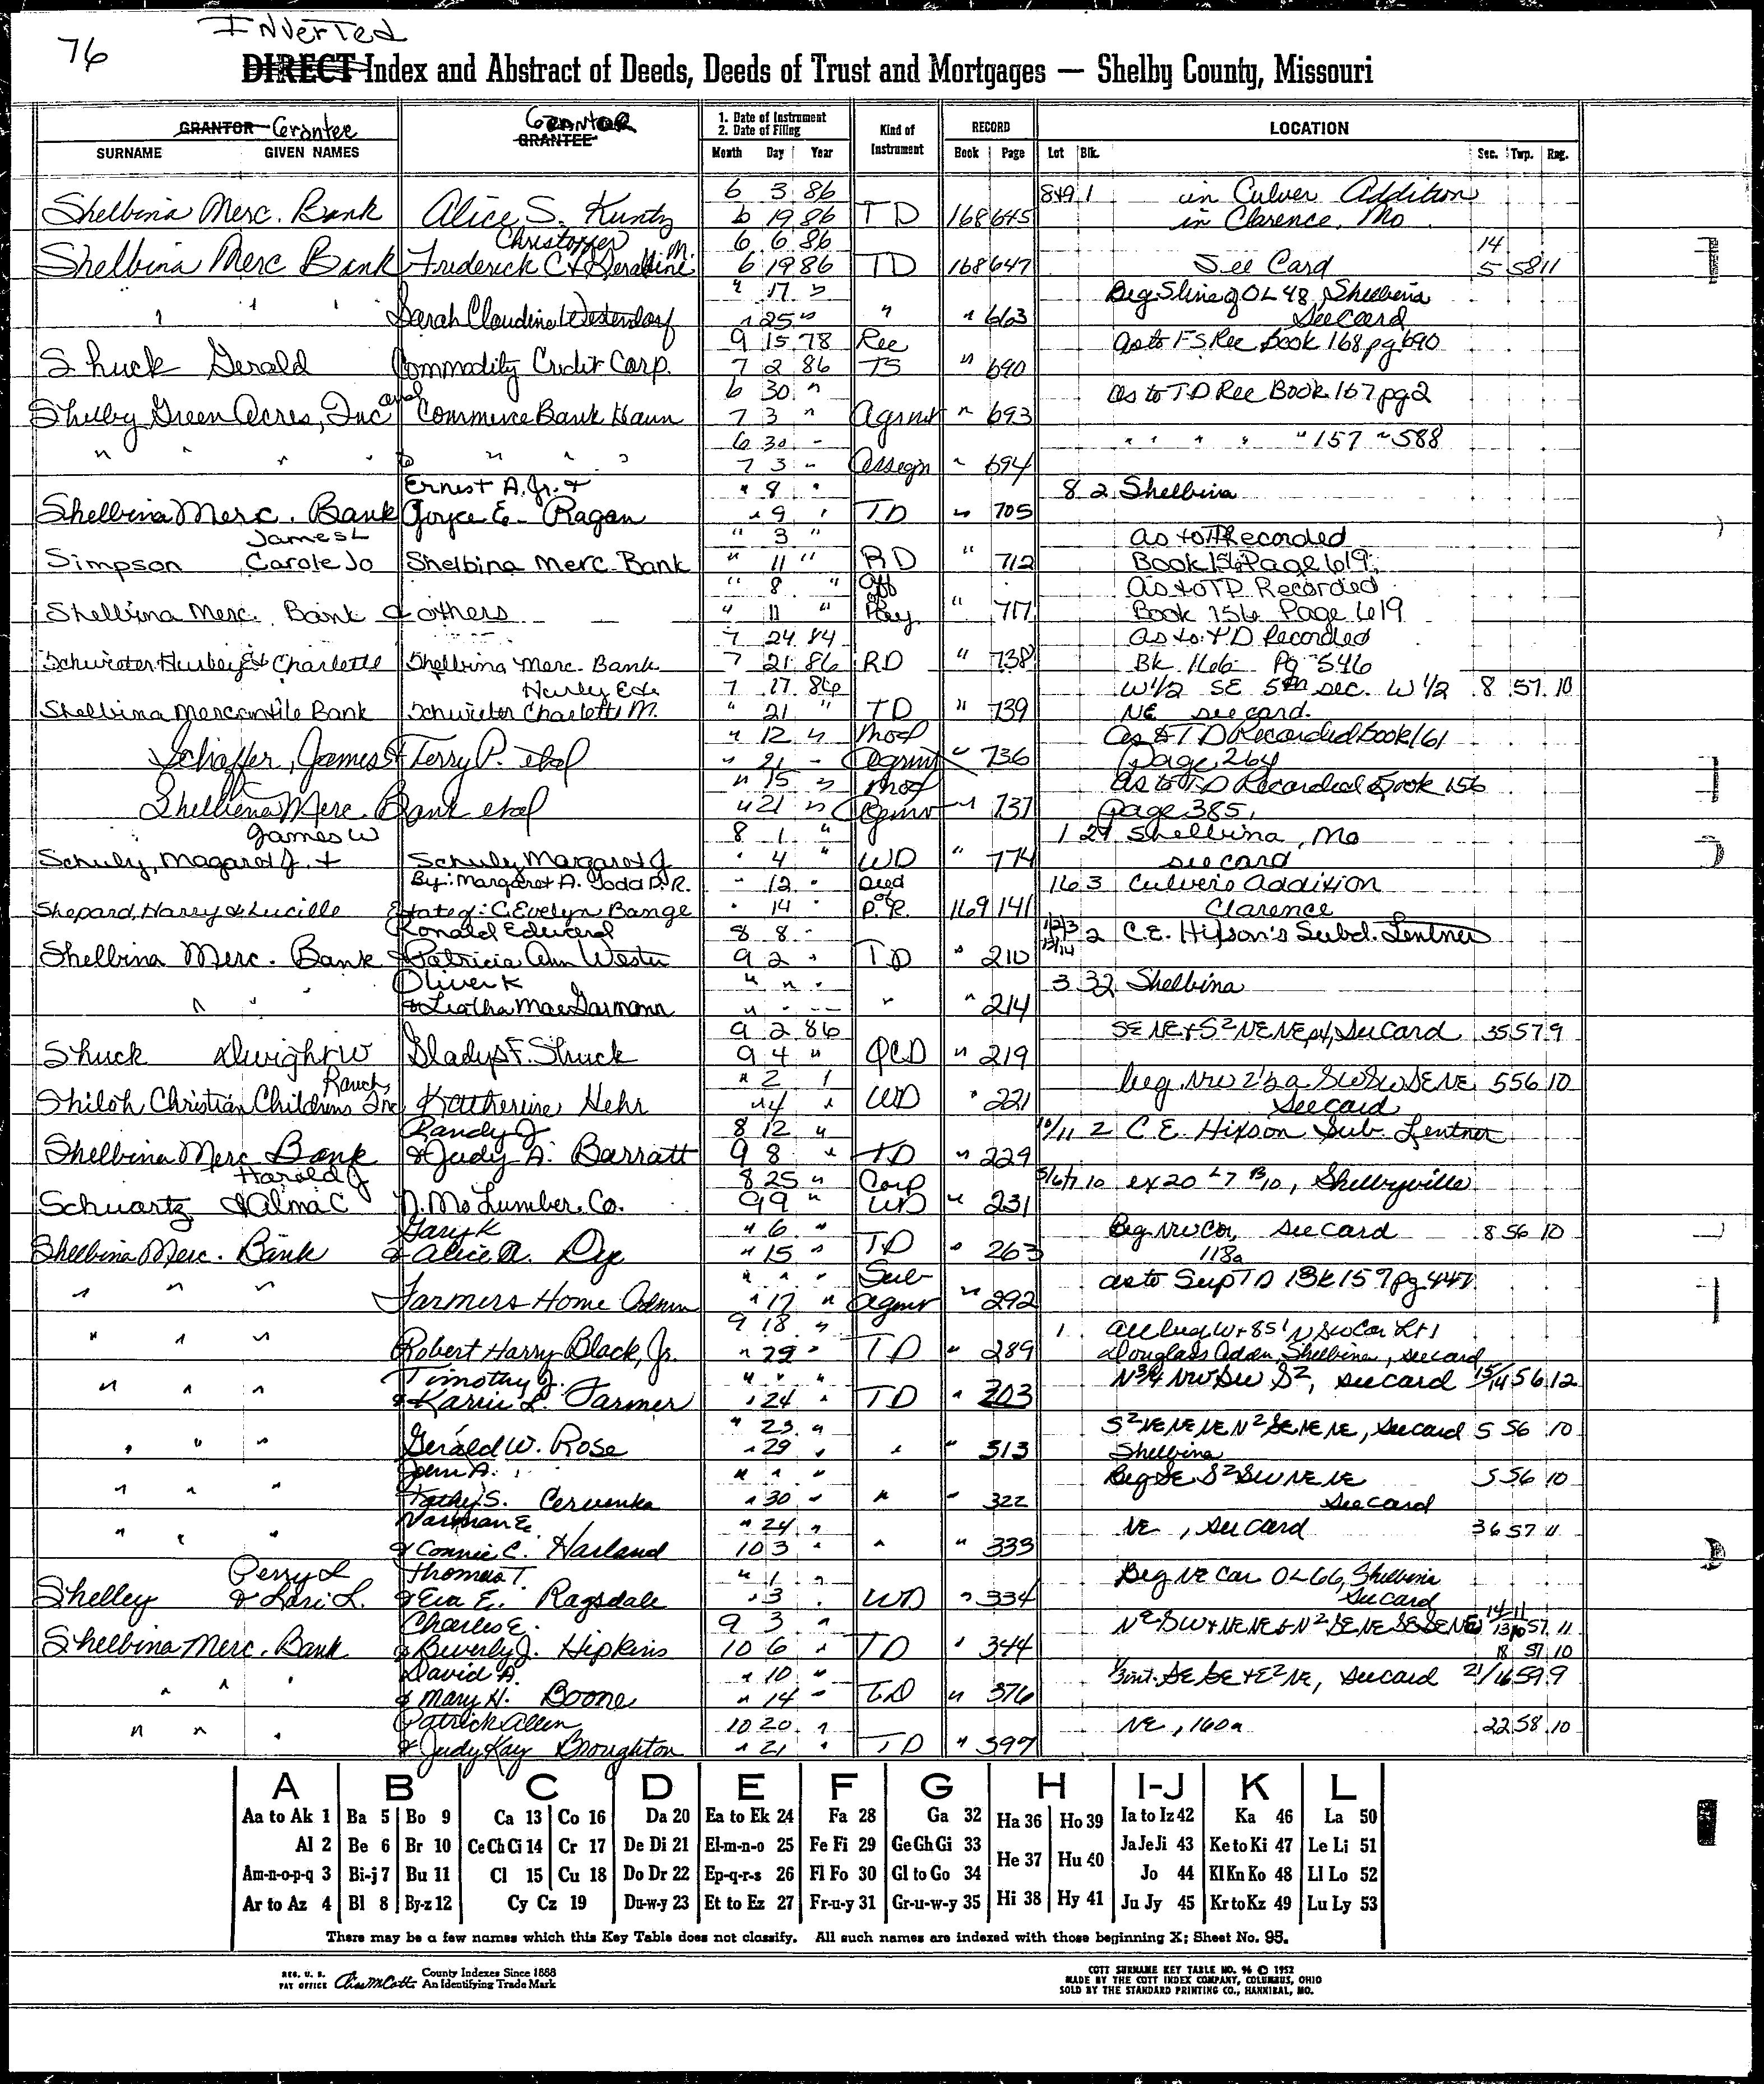 76
Inverted
DIRECT Index and Abstract of Deeds, Deeds of Trust and Mortgages — Shelby County, Missouri
GRANTOR Grantee
GRANTOR
GRANTEE
1. Date of Instrument
2. Date of Filing
Kind of Instrument
RECORD
LOCATION
SURNAME GIVEN NAMES Month Day Year Book Page Lot Blk. Sec. Twp. Rng.
6 3 86 8&9 1 in Culver Addition
Shelbina Merc. Bank Alice S. Kuntz 6 19 86 TD 168 645 in Clarence, Mo
Christoffer 6 6 86 14
Shelbina Merc Bank Frederick C & Geraldine M. 6 19 86 TD 168 647 See Card 5 58 11
" 17 " Beg S line of OL 48, Shelbina
" " " Sarah Claudine Westendorf " 25 " " " 663 See Card
9 15 78 Rec As to FS Rec Book 168 pg 690
Shuck Gerald Commodity Credit Corp. 7 2 86 TS " 690
6 30 " as to TD Rec Book 167 pg 2
Shelby Green Acres, Inc and Commerce Bank Haun 7 3 " Agrmt " 693
6 30 " " " " " " 157 " 588
" " " " to " " " 7 3 " Assegn " 694
Ernest A. Jr. & " 8 " 8 2 Shelbina
Shelbina Merc. Bank Joyce E. Ragan " 9 " TD " 705
James L " 3 " As to TD Recorded
Simpson Carole Jo Shelbina Merc. Bank " 11 " RD " 712 Book 156 Page 619
" 8 " Aff As to TD Recorded
Shelbina Merc. Bank & others " 11 " Pay " 717 Book 156 Page 619
7 24 84 As to TD Recorded
Schwieter Hurley E & Charlette Shelbina Merc. Bank 7 21 86 RD " 738 Bk 166 Pg 546
Hurley E & 7 17 86 W 1/2 SE 5th sec. W 1/2 8 57 10
Shelbina Mercantile Bank Schwieter Charlette M. " 21 " TD " 739 NE see card.
" 12 " Mod As to TD Recorded Book 161
Schaffer, James & Terry P. etal " 21 " Agrmt " 736 page 264
" 15 " Mod As to TD Recorded Book 156
Shelbina Merc Bank etal " 21 " Agmt " 737 page 385,
James W 8 1 " 1 29 Shelbina, Mo
Schuly, Magaret J. & Schuly Margaret J " 4 " WD " 774 see card
By: Margaret A. Todd P.R. " 12 " Deed 16 3 Culvers Addition
Shepard, Harry & Lucille Estate of: C. Evelyn Bange " 14 " of P.R. 169 141 Clarence
Ronald Edward 8 8 " 1/2/3 13/14 2 C.E. Hixson's Subd. Lentner
Shelbina Merc. Bank & Patricia Ann Wester 9 2 " TD " 210
Oliver K " " " 3 32 Shelbina
" " " & Leatha Mae Garmann " " " " " 214
9 2 86 SE NE & S2 NE NE pt, See Card 35 57 9
Shuck Dwight W Gladys F. Shuck 9 4 " QCD " 219
Ranch " 2 " beg NW 2 1/2 a SW SW SE NE 5 56 10
Shiloh Christian Childrens Inc Katherine Hehr " 4 " WD " 221 See card
Randy J 8 12 " 10/11 2 C.E. Hixson Sub. Lentner
Shelbina Merc Bank & Judy A. Barratt 9 8 " TD " 229
Harold J 8 25 " Corp 5/6/7 10 ex 20 L7 B10, Shelbyville
Schwartz & Alma C N. Mo Lumber. Co. 9 9 " WD " 231
Gary K " 6 " Beg NW Cor, see card 8 56 10
Shelbina Merc. Bank & Alice A. Dye " 15 " TD " 263 118a
" " " Sub as to Sup TD Bk 157 pg 447
" " " Farmers Home Admn " 17 " Agmt " 292
9 18 " 1 All beg W & 85' N SW Cor Lt 1
" " " Robert Harry Black, Jr. " 29 " TD " 289 Douglass Addn, Shelbina, see card
Timothy J. " " " N 3/4 NW SW S2, see card 15/14 56 12
" " " & Karrie L. Farmer " 24 " TD " 303
" 23 " S2 NE NE NE N2 SE NE NE, See card 5 56 10
" " " Gerald W. Rose " 29 " " " 313 Shelbina
John A. " " " Beg SE S2 SW NE NE 5 56 10
" " " Kathy S. Cervenka " 30 " " " 322 See card
Norman E. " 24 " NE, see card 36 57 11
" " " & Connie C. Harland 10 3 " " " 333
Perry L Thomas T. " 1 " Beg NE Cor OL 66, Shelbina
Shelley & Lori L. & Eva E. Ragsdale " 3 " WD " 334 See card
Charles E. 9 3 " N2 SW & NE NE & N2 SE NE SE SE NE 14-11 13/10 57 11
Shelbina Merc. Bank & Beverly J. Hipkins 10 6 " TD " 344 18 57 10
David A. " 10 " SE SE & E2 NE, see card 21/16 59 9
" " " & Mary H. Boone " 14 " TD " 376
Patrick Allen 10 20 " NE, 160a 22 58 10
" " " & Judy Kay Broughton " 21 " TD " 397
A B C D E F G H I-J K L
Aa to Ak 1 Ba 5 Bo 9 Ca 13 Co 16 Da 20 Ea to Ek 24 Fa 28 Ga 32 Ha 36 Ho 39 Ia to Iz 42 Ka 46 La 50
Al 2 Be 6 Br 10 Ce Ch Ci 14 Cr 17 De Di 21 El-m-n-o 25 Fe Fi 29 Ge Gh Gi 33 He 37 Hu 40 Ja Je Ji 43 Ke to Ki 47 Le Li 51
Am-n-o-p-q 3 Bi-j 7 Bu 11 Cl 15 Cu 18 Do Dr 22 Ep-q-r-s 26 Fl Fo 30 Gl to Go 34 Jo 44 Kl Kn Ko 48 Ll Lo 52
Ar to Az 4 Bl 8 By-z 12 Cy Cz 19 Du-w-y 23 Et to Ez 27 Fr-u-y 31 Gr-u-w-y 35 Hi 38 Hy 41 Ju Jy 45 Kr to Kz 49 Lu Ly 53
There may be a few names which this Key Table does not classify. All such names are indexed with those beginning X; Sheet No. 95.
REG. U. S. PAT OFFICE County Indexes Since 1888 An Identifying Trade Mark
COTT SURNAME KEY TABLE NO. 96 © 1952
MADE BY THE COTT INDEX COMPANY, COLUMBUS, OHIO
SOLD BY THE STANDARD PRINTING CO., HANNIBAL, MO.